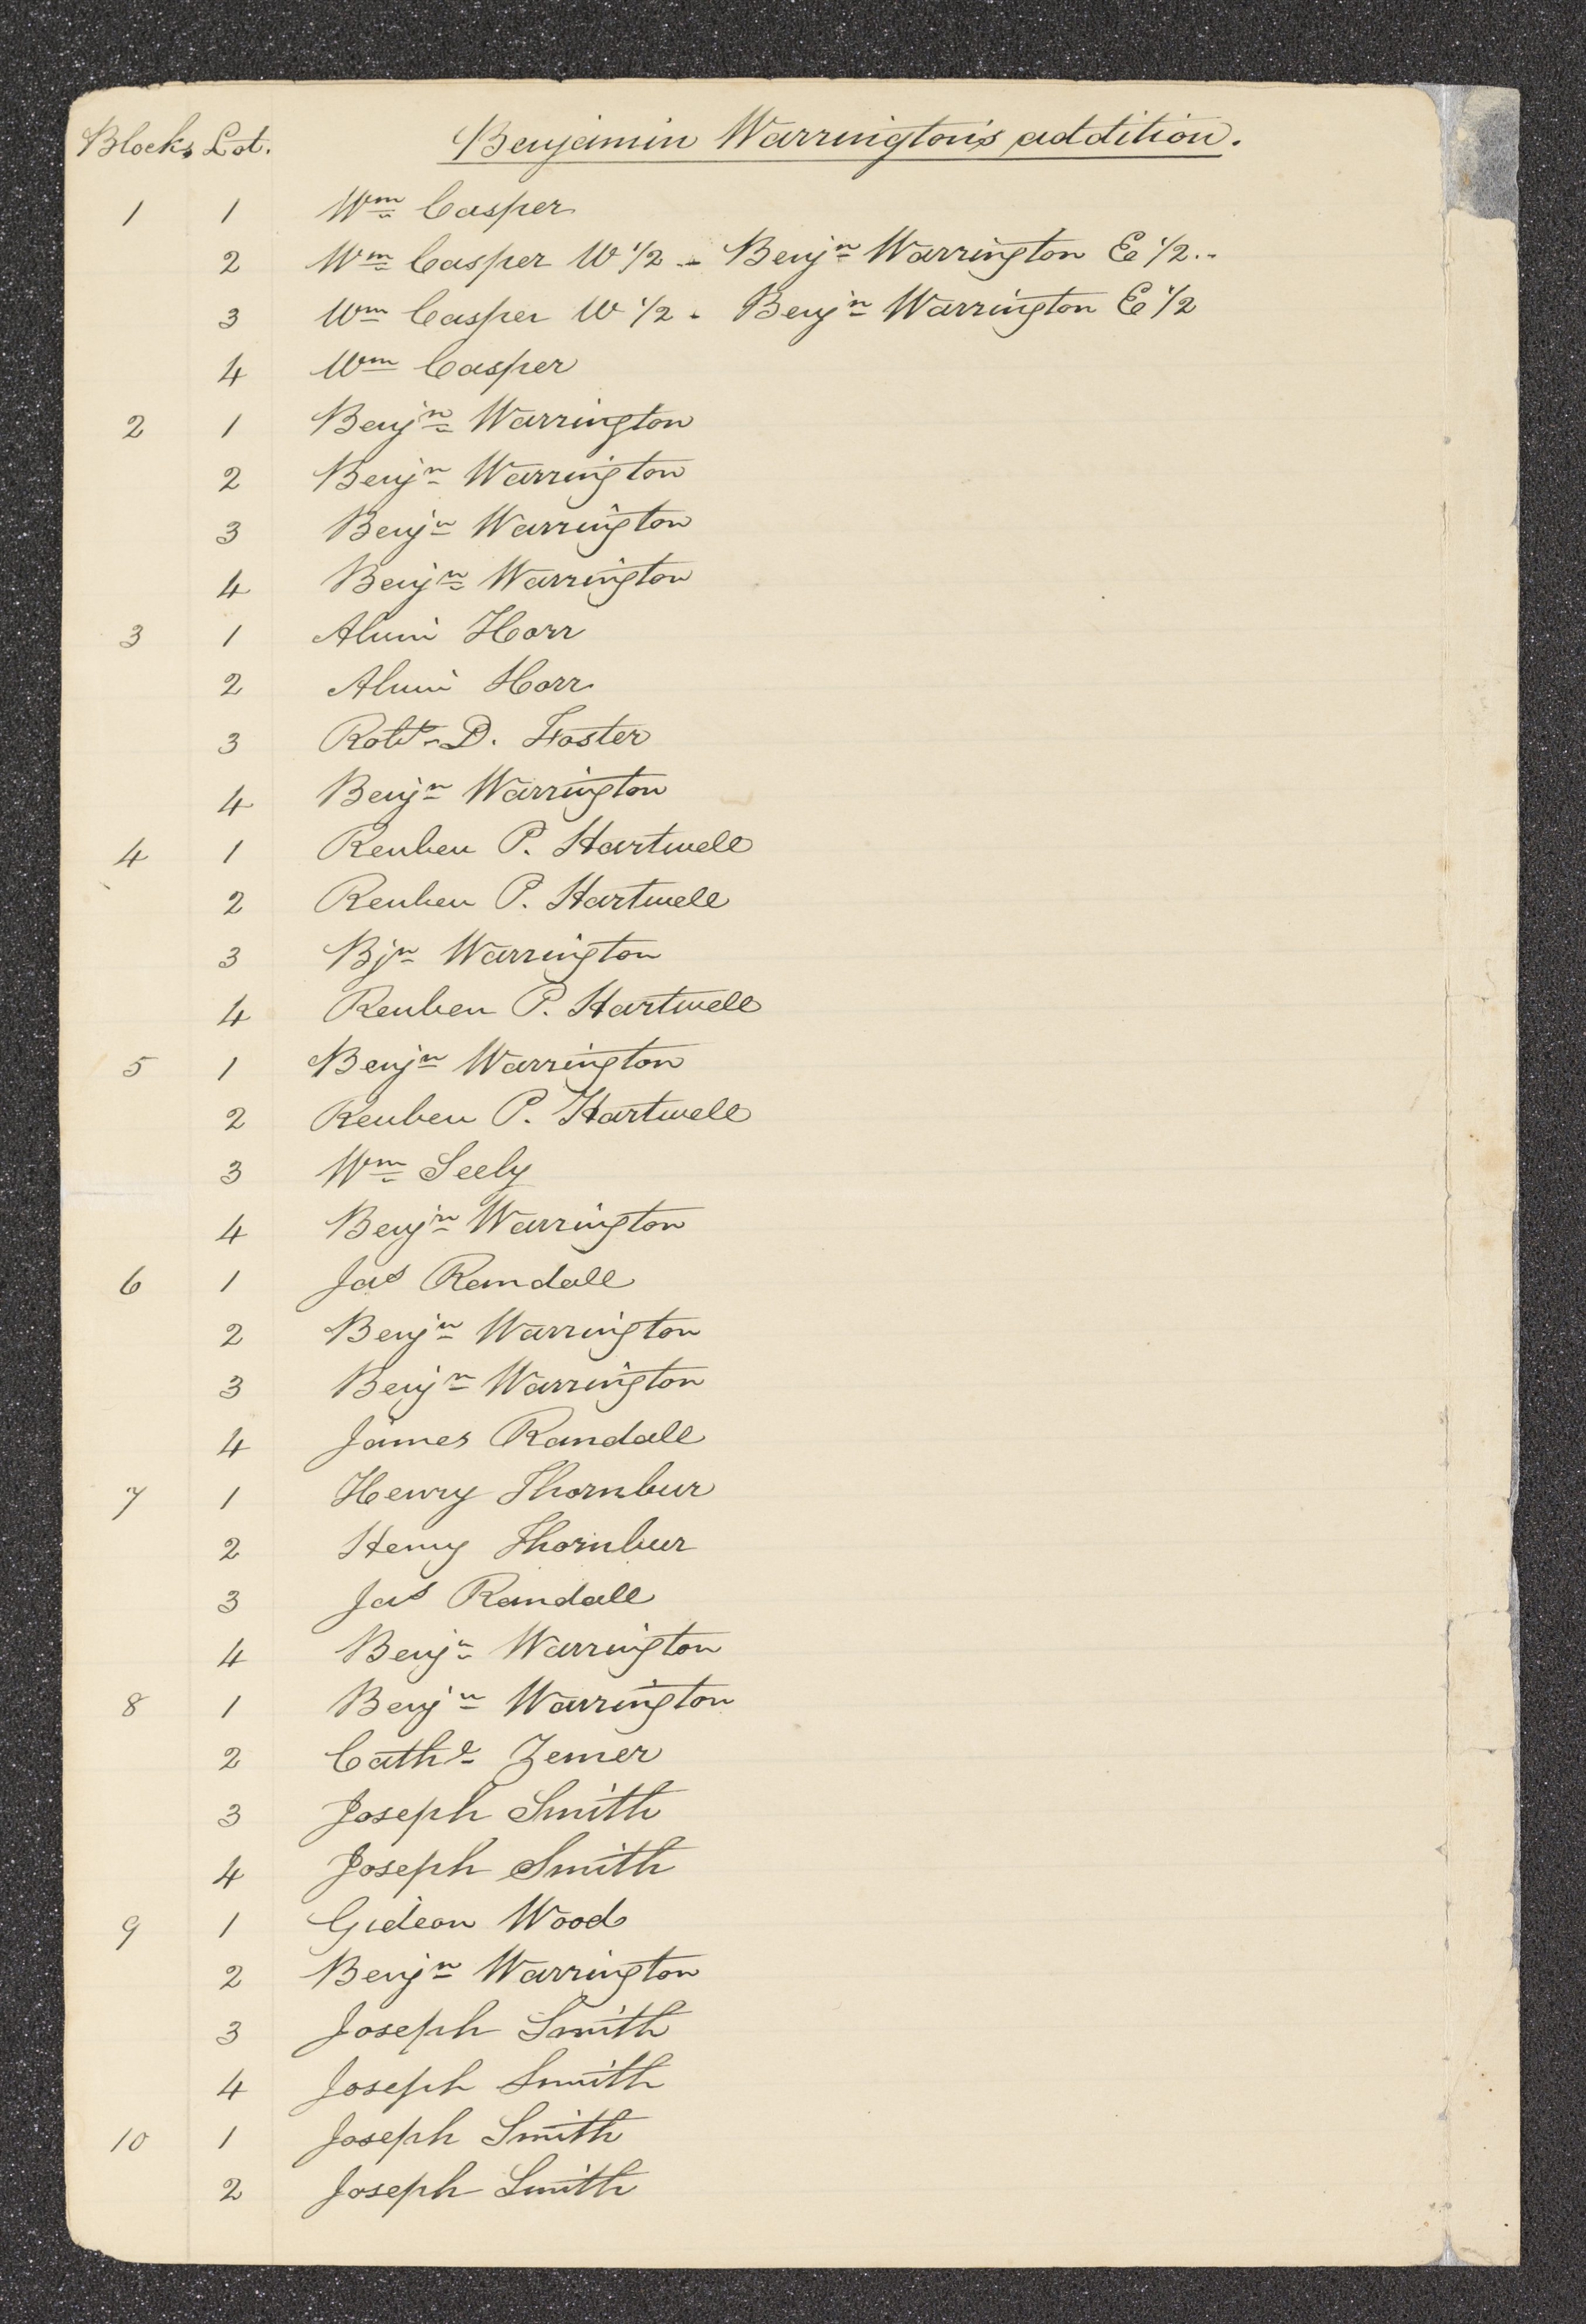 Blocks Lot. Benjamin Warrington's addition.
1 1 Wm Casper
2 Wm Casper W 1/2 - Benjn Warrington E 1/2..
3 Wm Casper W 1/2 - Benjn Warrington E 1/2
4 Wm Casper
2 1 Benjn Warrington
2 Benjn Warrington
3 Benjn Warrington
4 Benjn Warrington
3 1 Alvin Horr
2 Alvin Horr
3 Robt D. Foster
4 Benjn Warrington
4 1 Reuben P. Hartwell
2 Reuben P. Hartwell
3 Bjn Warrington
4 Reuben P. Hartwell
5 1 Benjn Warrington
2 Reuben P. Hartwell
3 Wm Seely
4 Benjn Warrington
6 1 Jas Randall
2 Benjn Warrington
3 Benjn Warrington
4 James Randall
7 1 Henry Thornbur
2 Henry Thornbur
3 Jas Randall
4 Benjn Warrington
8 1 Benjn Warrington
2 Cathe Zemer
3 Joseph Smith
4 Joseph Smith
9 1 Gideon Wood
2 Benjn Warrington
3 Joseph Smith
4 Joseph Smith
10 1 Joseph Smith
2 Joseph Smith